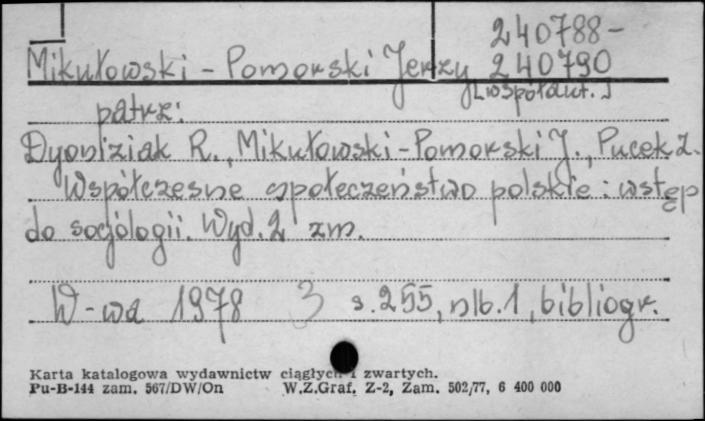 240788-
Mikułowski - Pomorski Jerzy 240790
[współaut.]
patrz:
Dyoniziak R., Mikułowski-Pomorski J., Pucek Z.
Współczesne społeczeństwo polskie: wstęp
do socjologii. Wyd. 2 zm.
W-wa 1978 3 s. 255, nlb. 1, bibliogr.
Karta katalogowa wydawnictw ciągłych i zwartych.
Pu-B-144 zam. 567/DW/On W.Z.Graf. Z-2, Zam. 502/77, 6 400 000